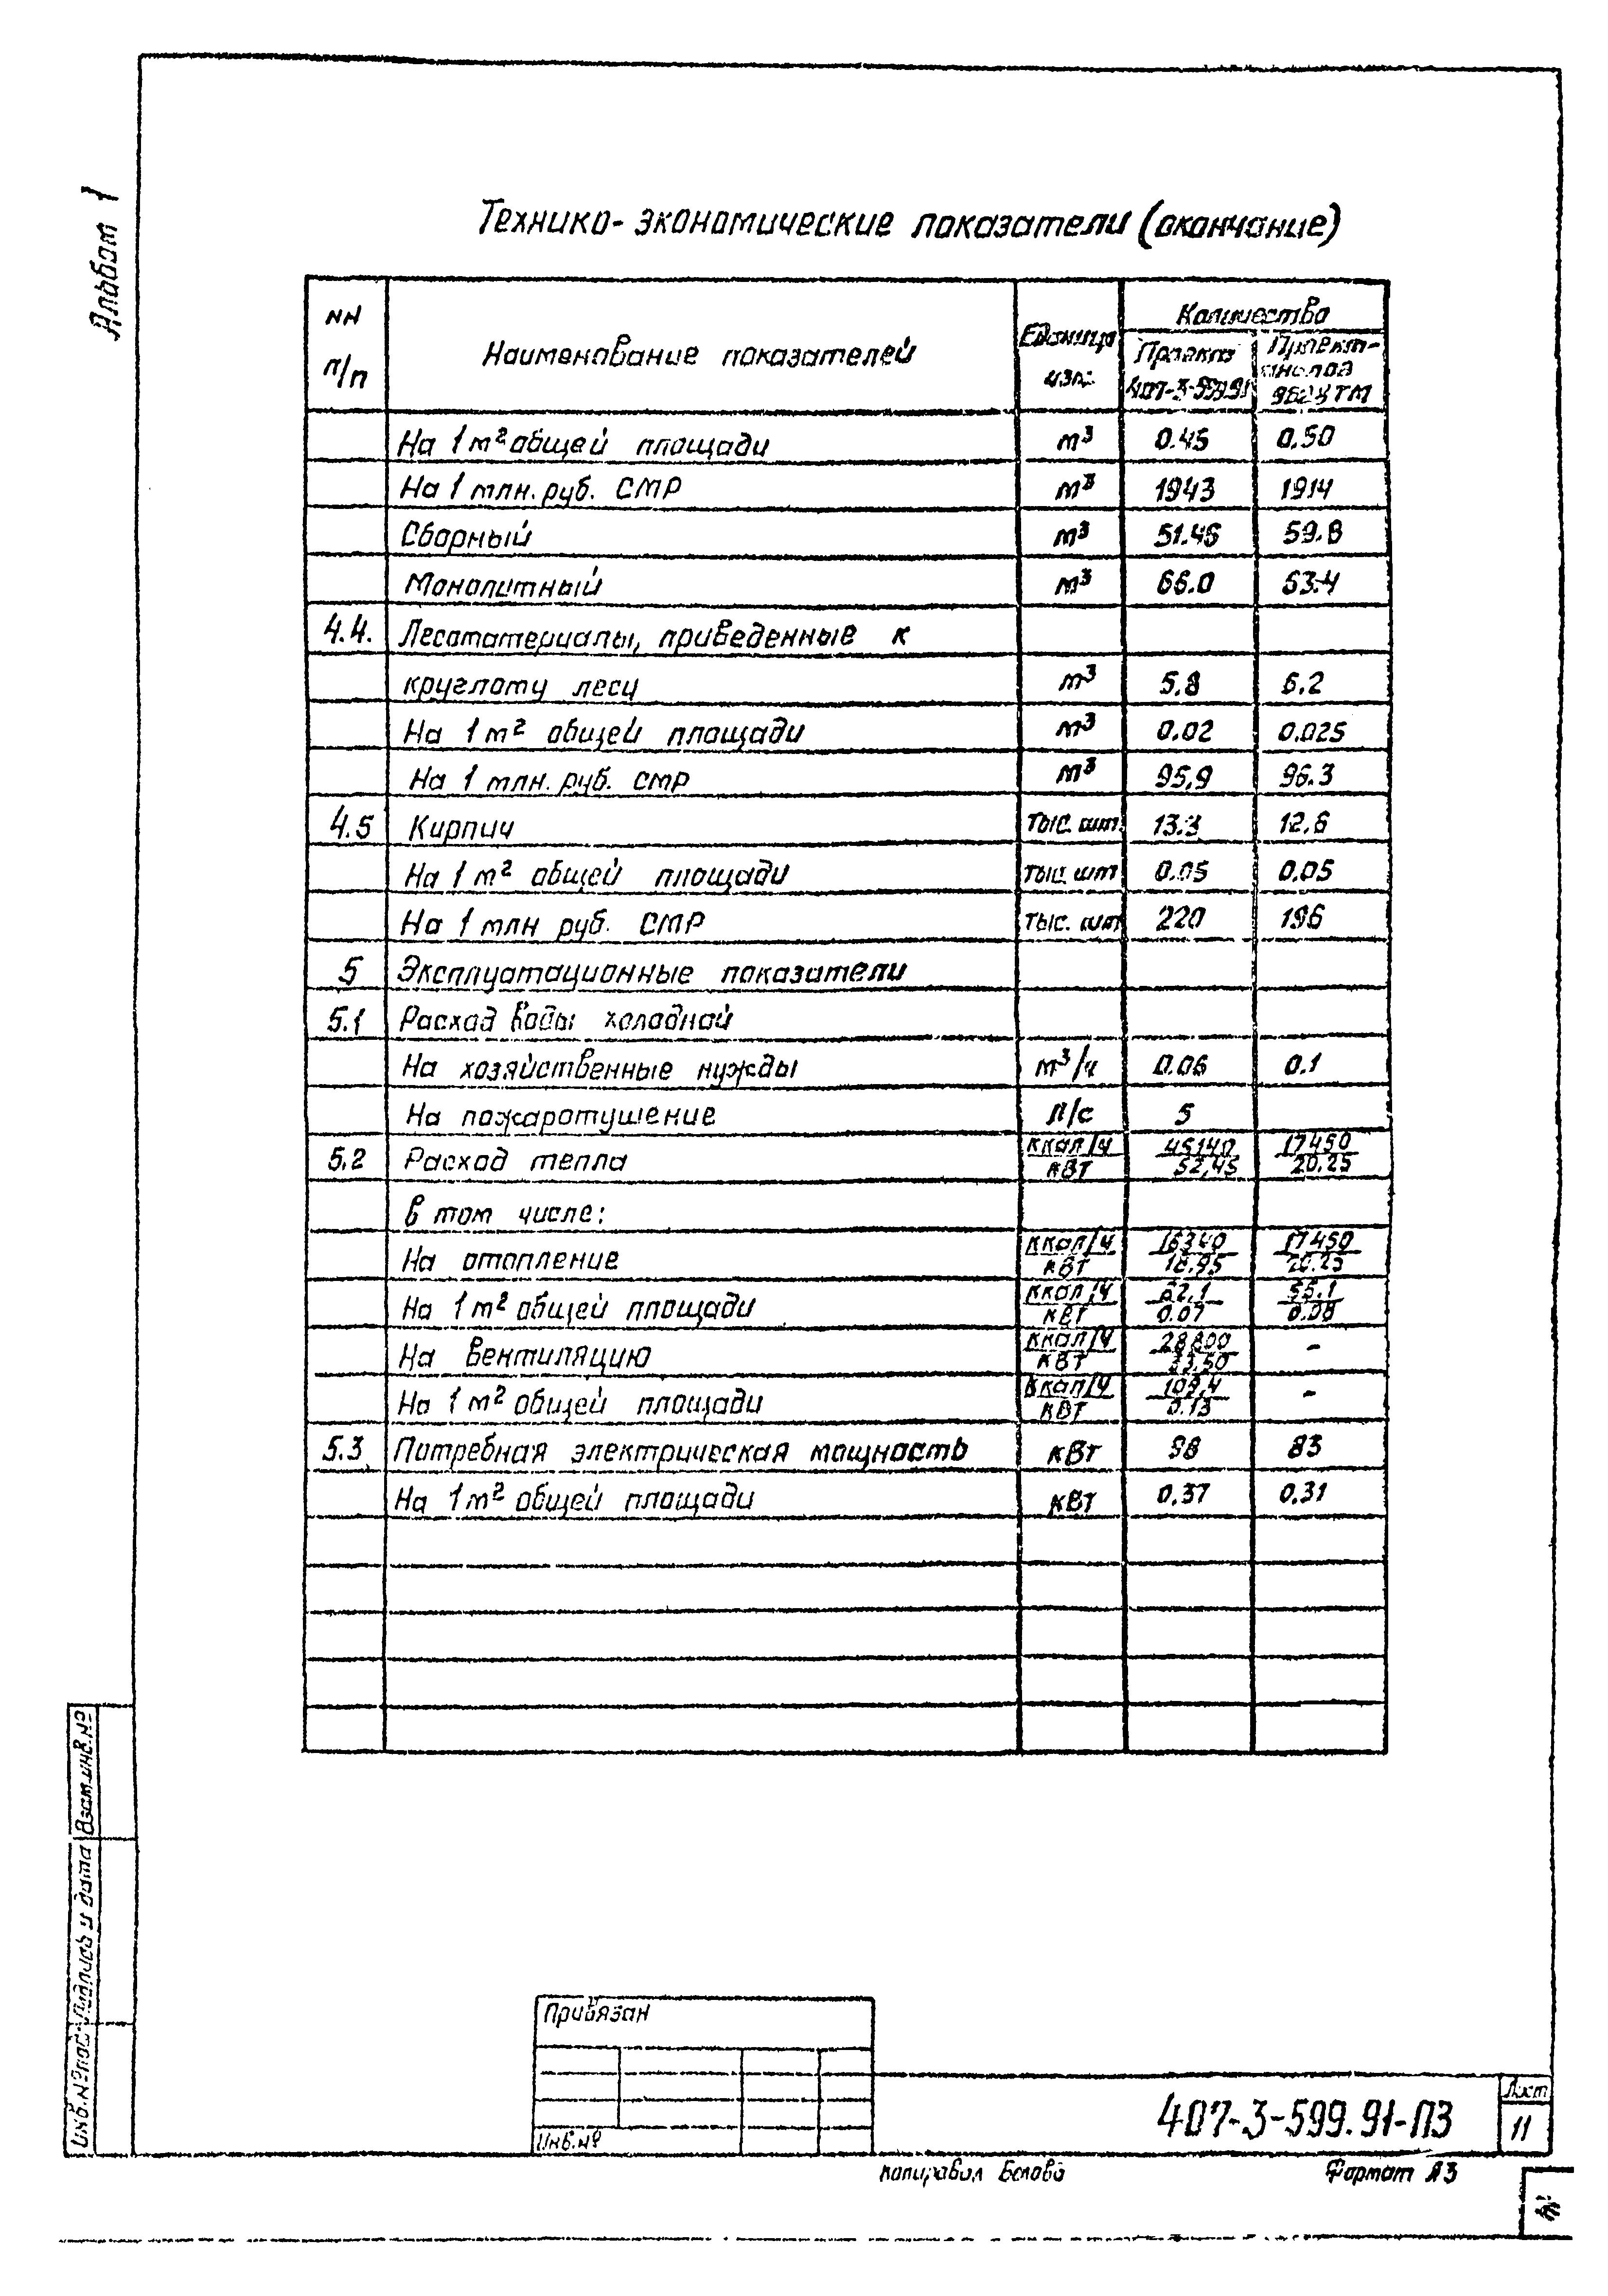 Альбом 1
Технико-экономические показатели (окончание)
NN п/п
Наименование показателей
Единица изм.
Количество
Проект 407-3-599.91
Проект-аналог
На 1 м² общей площади м³ 0.45 0.50
На 1 млн. руб. СМР м³ 1943 1914
Сборный м³ 51.46 59.8
Монолитный м³ 66.0 53.4
4.4. Лесоматериалы, приведенные к
круглому лесу м³ 5.8 6.2
На 1 м² общей площади м³ 0.02 0.025
На 1 млн. руб. СМР м³ 95.9 96.3
4.5 Кирпич тыс. шт. 13.3 12.6
На 1 м² общей площади тыс. шт 0.05 0.05
На 1 млн руб. СМР тыс. шт 220 196
5 Эксплуатационные показатели
5.1 Расход воды холодной
На хозяйственные нужды м³/ч 0.06 0.1
На пожаротушение л/с 5
5.2 Расход тепла ккал/ч 45140 17450
кВт 52.45 20.25
в том числе:
На отопление ккал/ч 16340 17450
кВт 18.95 20.25
На 1 м² общей площади ккал/ч 62.1
кВт 0.07 0.08
На вентиляцию ккал/ч 28800 -
кВт 33.50
На 1 м² общей площади ккал/ч 109.4 -
кВт 0.13
5.3 Потребная электрическая мощность кВт 98 83
На 1 м² общей площади кВт 0.37 0.31
Взам.инв.№
Подпись и дата
Инв.№ под.
Привязан
Инв.№
407-3-599.91-ПЗ
Лист
11
копировал Белова
Формат А3